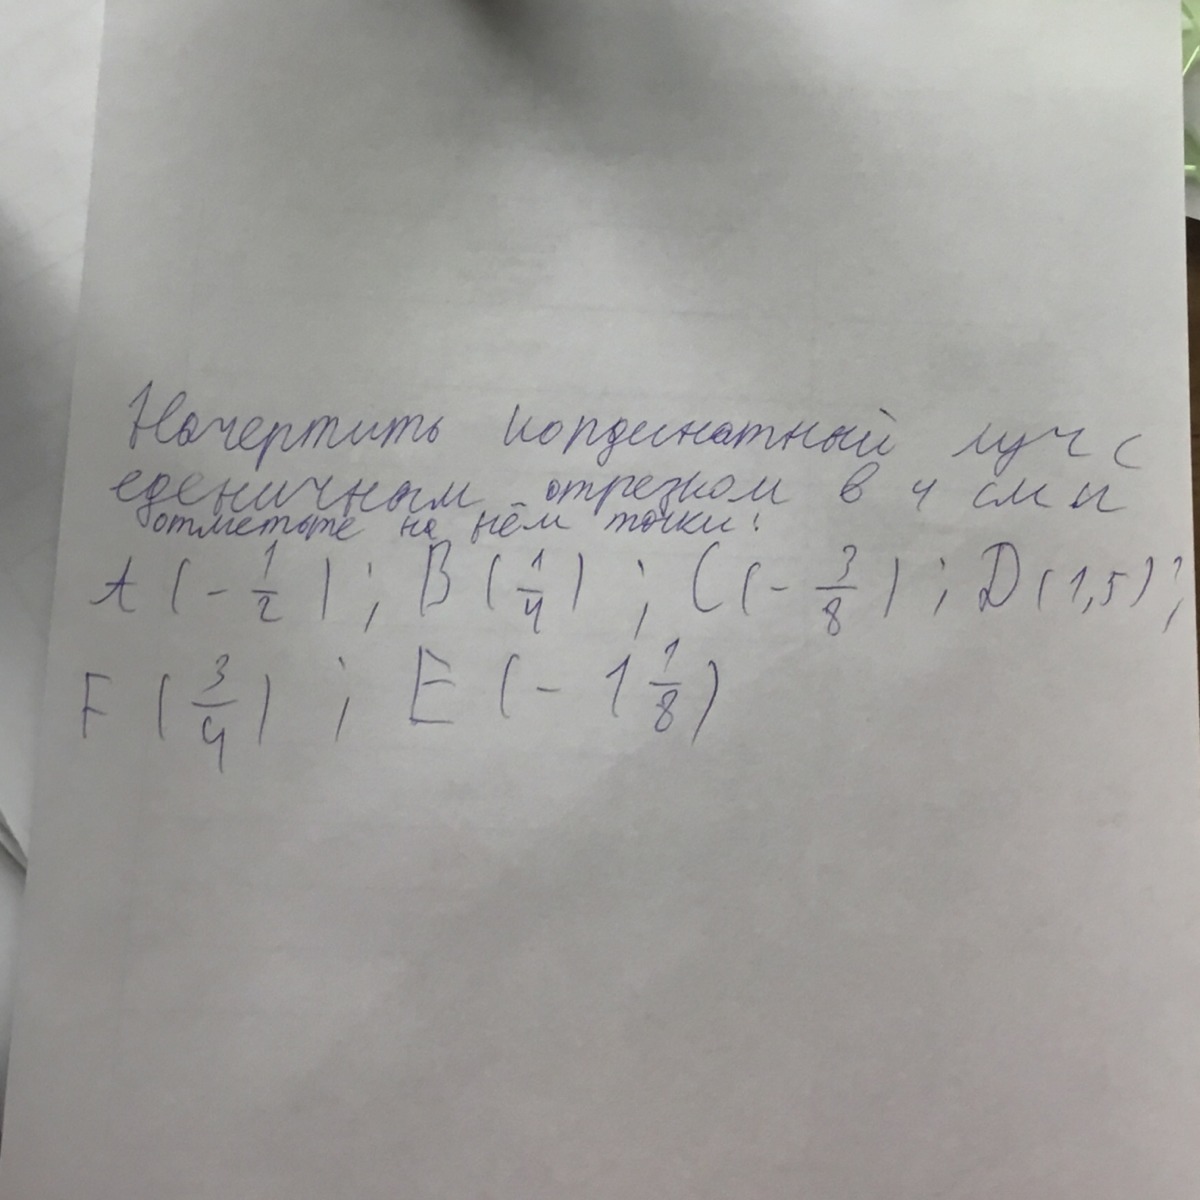 Начертить кординатный луч с
еденичным отрезком в 4 см и
отметьте на нём точки:
A (- 1/2) ; B (1/4) ; C (- 3/8) ; D (1,5) ;
F (3/4) ; E (- 1 1/8)